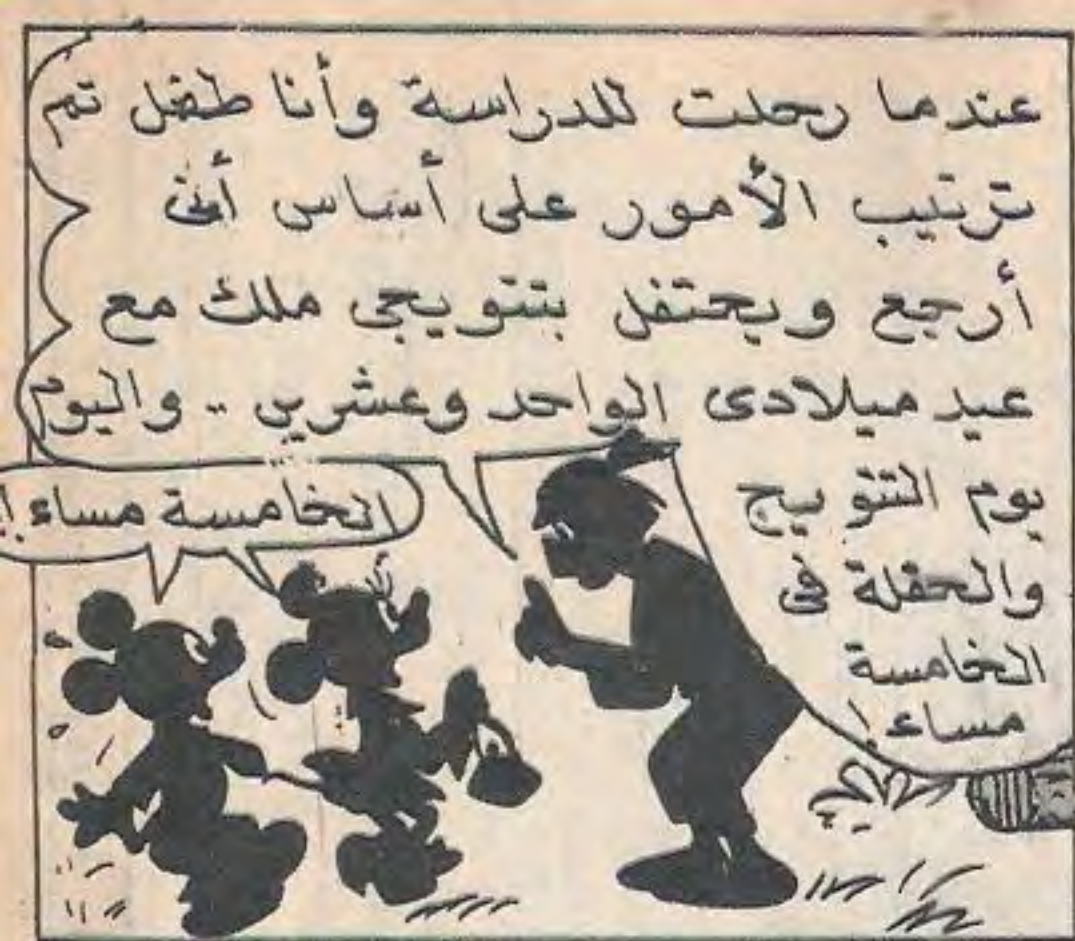 عندما رحلت للدراسة وأنا طفل تم
ترتيب الأمور على أساس أن
أرجع ويحتفل بتتويجى ملك مع
عيد ميلادى الواحد وعشرين .. واليوم
يوم التتويج
والحفلة فى
الخامسة
مساء !
الخامسة مساء !